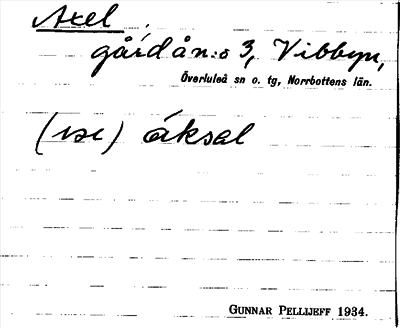 Axel.
gård å n:o 3, Vibbyn,
Överluleå sn o. tg, Norrbottens län.
(ise) áksal
GUNNAR PELLIJEFF 1934.